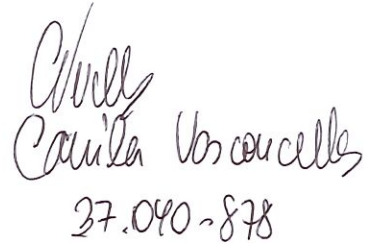 Camila Vasconcellos
37.040-878